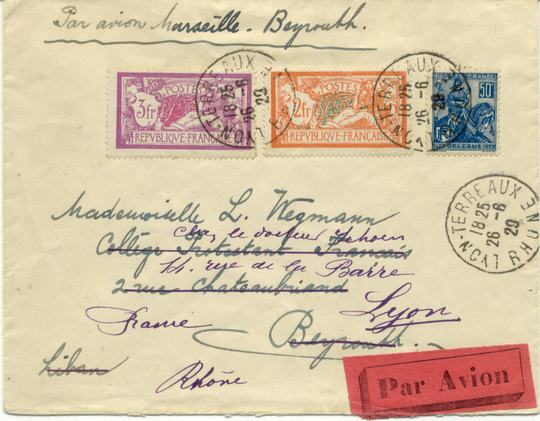 Par avion Marseille - Beyrouth.
POSTES
3fr
REPVBLIQUE FRANÇAISE
POSTES
2fr
REPVBLIQUE FRANÇAISE
POSTES FRANCE
50c
ORLEANS 1929
LYON-TERREAUX RHONE
18 25
26 -6
29
LYON-TERREAUX RHONE
18 25
26 -6
29
LYON-TERREAUX RHONE
18 25
26 -6
29
Mademoiselle L. Wegmann
chez le docteur
Collège Protestant Français
14. rue de la Barre
2 rue Chateaubriand
Lyon
France
Beyrouth.
Liban
Rhône
Par Avion